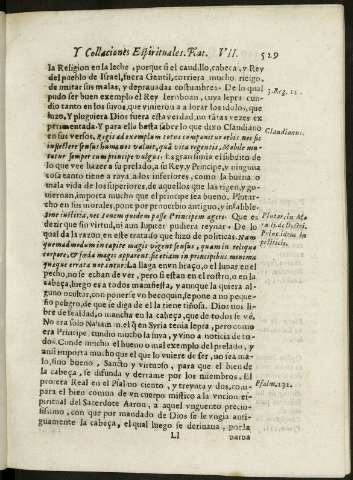 Y Collaciones Espirituales. Rat. VII. 529
la Religion en la leche, porque si el caudillo, cabeça, y Rey
del pueblo de Israel, fuera Gentil, corriera mucho riesgo
de imitar sus malas, y deprauadas costumbres. De lo qual
pudo ser buen exemplo el Rey Ieroboan, cuya lepra cun-
dio tanto en los suyos, que vinieron a adorar los idolos, que
hizo, Y pluguiera Dios fuera esta verdad, no tantas vezes ex
perimentada. Y para ella basta saber lo que dixo Claudiano
en sus versos. Regis ad exemplum totus componitur orbis: nec sic
inflectere sensus humanos valait, quã vita regentis. Mobile mu-
tatur semper cum principe vulgus: Es gran sunia el subdito de
lo que vee hazer a su prelado, a su Rey, y Principe, y ninguna
cosa tanto tiene a raya a los inferiores, como la buena o
mala vida de los superiores, de aquellos que las rigen, y go-
uiernan, importa mucho que el principe sea bueno. Plutar-
cho en sus morales, pone por prouerbio antiguo, y infalible
sine iustitia, nec Iouem quidem posse Principem agere. Que es
dezir que sin virtud, ni aun Iupiter pudiera reynar. De lo
qual da la razon en este tratado que hizo de politicas. Nam
quemadmodum in capite magis vrgent sensus, quam in reliquo
corpore, & foeda magis apparent, sic etiam in principibus minima
quaeque errata notantur. La llaga en vn braço, o el lunar en el
pecho, no se echan de ver, pero si estan en el rostro, o en la
cabeça, luego era a todos manifiesta, y aunque la quiera al-
guno ocultar, con ponerse vn becoquin, se pone a no peque-
ño peligro, de que se diga de el la tiene tiñosa. Dios nos li-
bre de fealdad, o mancha en la cabeça, que de todos se vê.
No era solo Naiman el q̃ en Syria tenia lepra, pero como
era Principe cundio mucho la suya, y vino a noticia de to-
dos. Cunde mucho el bueno o mal exemplo del prelado, y
ansi importa mucho que el que lo vuiere de ser, no sea ma-
lo, sino bueno, Sancto y virtuoso, para que el bien de
la cabeça, se difunda y derrame por los miembros. El
propheta Real en el Psalmo ciento, y treynta y dos, com-
para el bien comun de vn cuerpo mistico a la vncion es-
piritual del Sacerdote Aaron, a aquel vnguento precio-
sissimo, con que por mandado de Dios se le vngia anti-
guamente la cabeça, el qual luego se deriuaua, por la
Ll barba
3. Reg. 12.
Claudianus.
Psalm. 132.